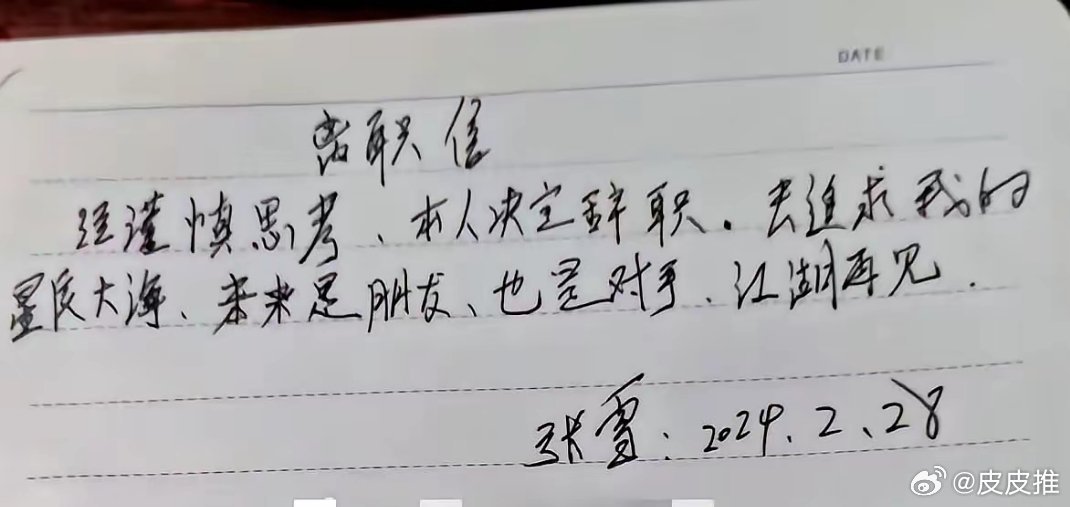 DATE
离职信
经谨慎思考、本人决定辞职。去追求我的
星辰大海、未来是朋友、也是对手、江湖再见.
张雪: 2024.2.28
@皮皮推